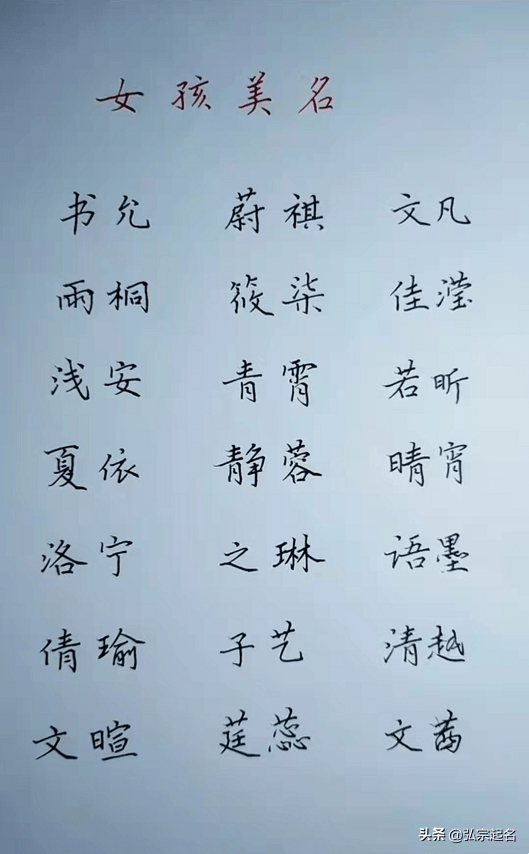 女孩美名
书允 蔚祺 文凡
雨桐 筱柒 佳滢
浅安 青霄 若昕
夏依 静蓉 晴宵
洛宁 之琳 语墨
倩瑜 子艺 清越
文暄 莛蕊 文茜
头条 @弘宗起名